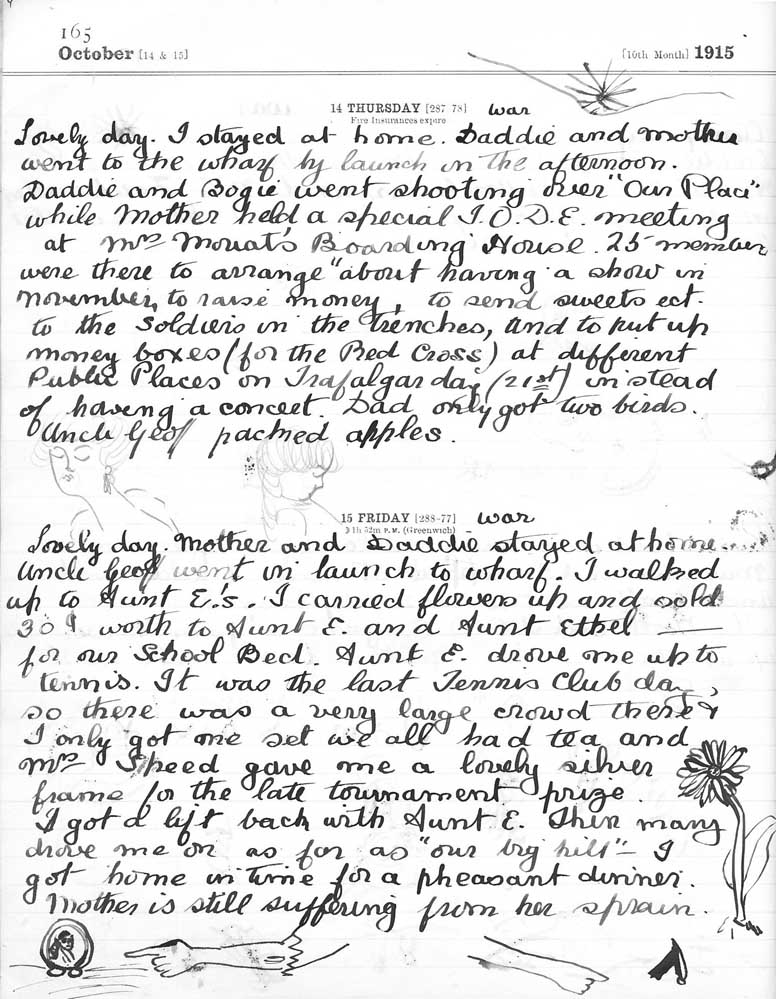 165
October [14 & 15] [10th Month] 1915
14 THURSDAY [287-78] war
Fire Insurances expire
Lovely day. I stayed at home. Daddie and Mother
went to the wharf by launch in the afternoon.
Daddie and Bogie went shooting over "Our Place"
while Mother held a special I.O.D.E. meeting
at Mrs Mouat's Boarding House. 25 member
were there to arrange "about having a show in
November, to raise money, to send sweets ect.
to the Soldiers in the trenches, and to put up
money boxes (for the Red Cross) at different
Public Places on Trafalgar day (21st) instead
of having a concert. Dad only got two birds.
Uncle Geof packed apples.
15 FRIDAY [288-77] war
1h 52m P.M. (Greenwich)
Lovely day. Mother and Daddie stayed at home.
Uncle Geof went in launch to wharf. I walked
up to Aunt E.'s. I carried flowers up and sold
30¢ worth to Aunt E. and Aunt Ethel —
for our School Bed. Aunt E. drove me up to
tennis. It was the last Tennis Club day,
so there was a very large crowd there &
I only got one set we all had tea and
Mrs Speed gave me a lovely silver
frame for the late tournament prize.
I got a lift back with Aunt E. Then many
drove me on as far as "our big hill" – I
got home in time for a pheasant dinner.
Mother is still suffering from her sprain.